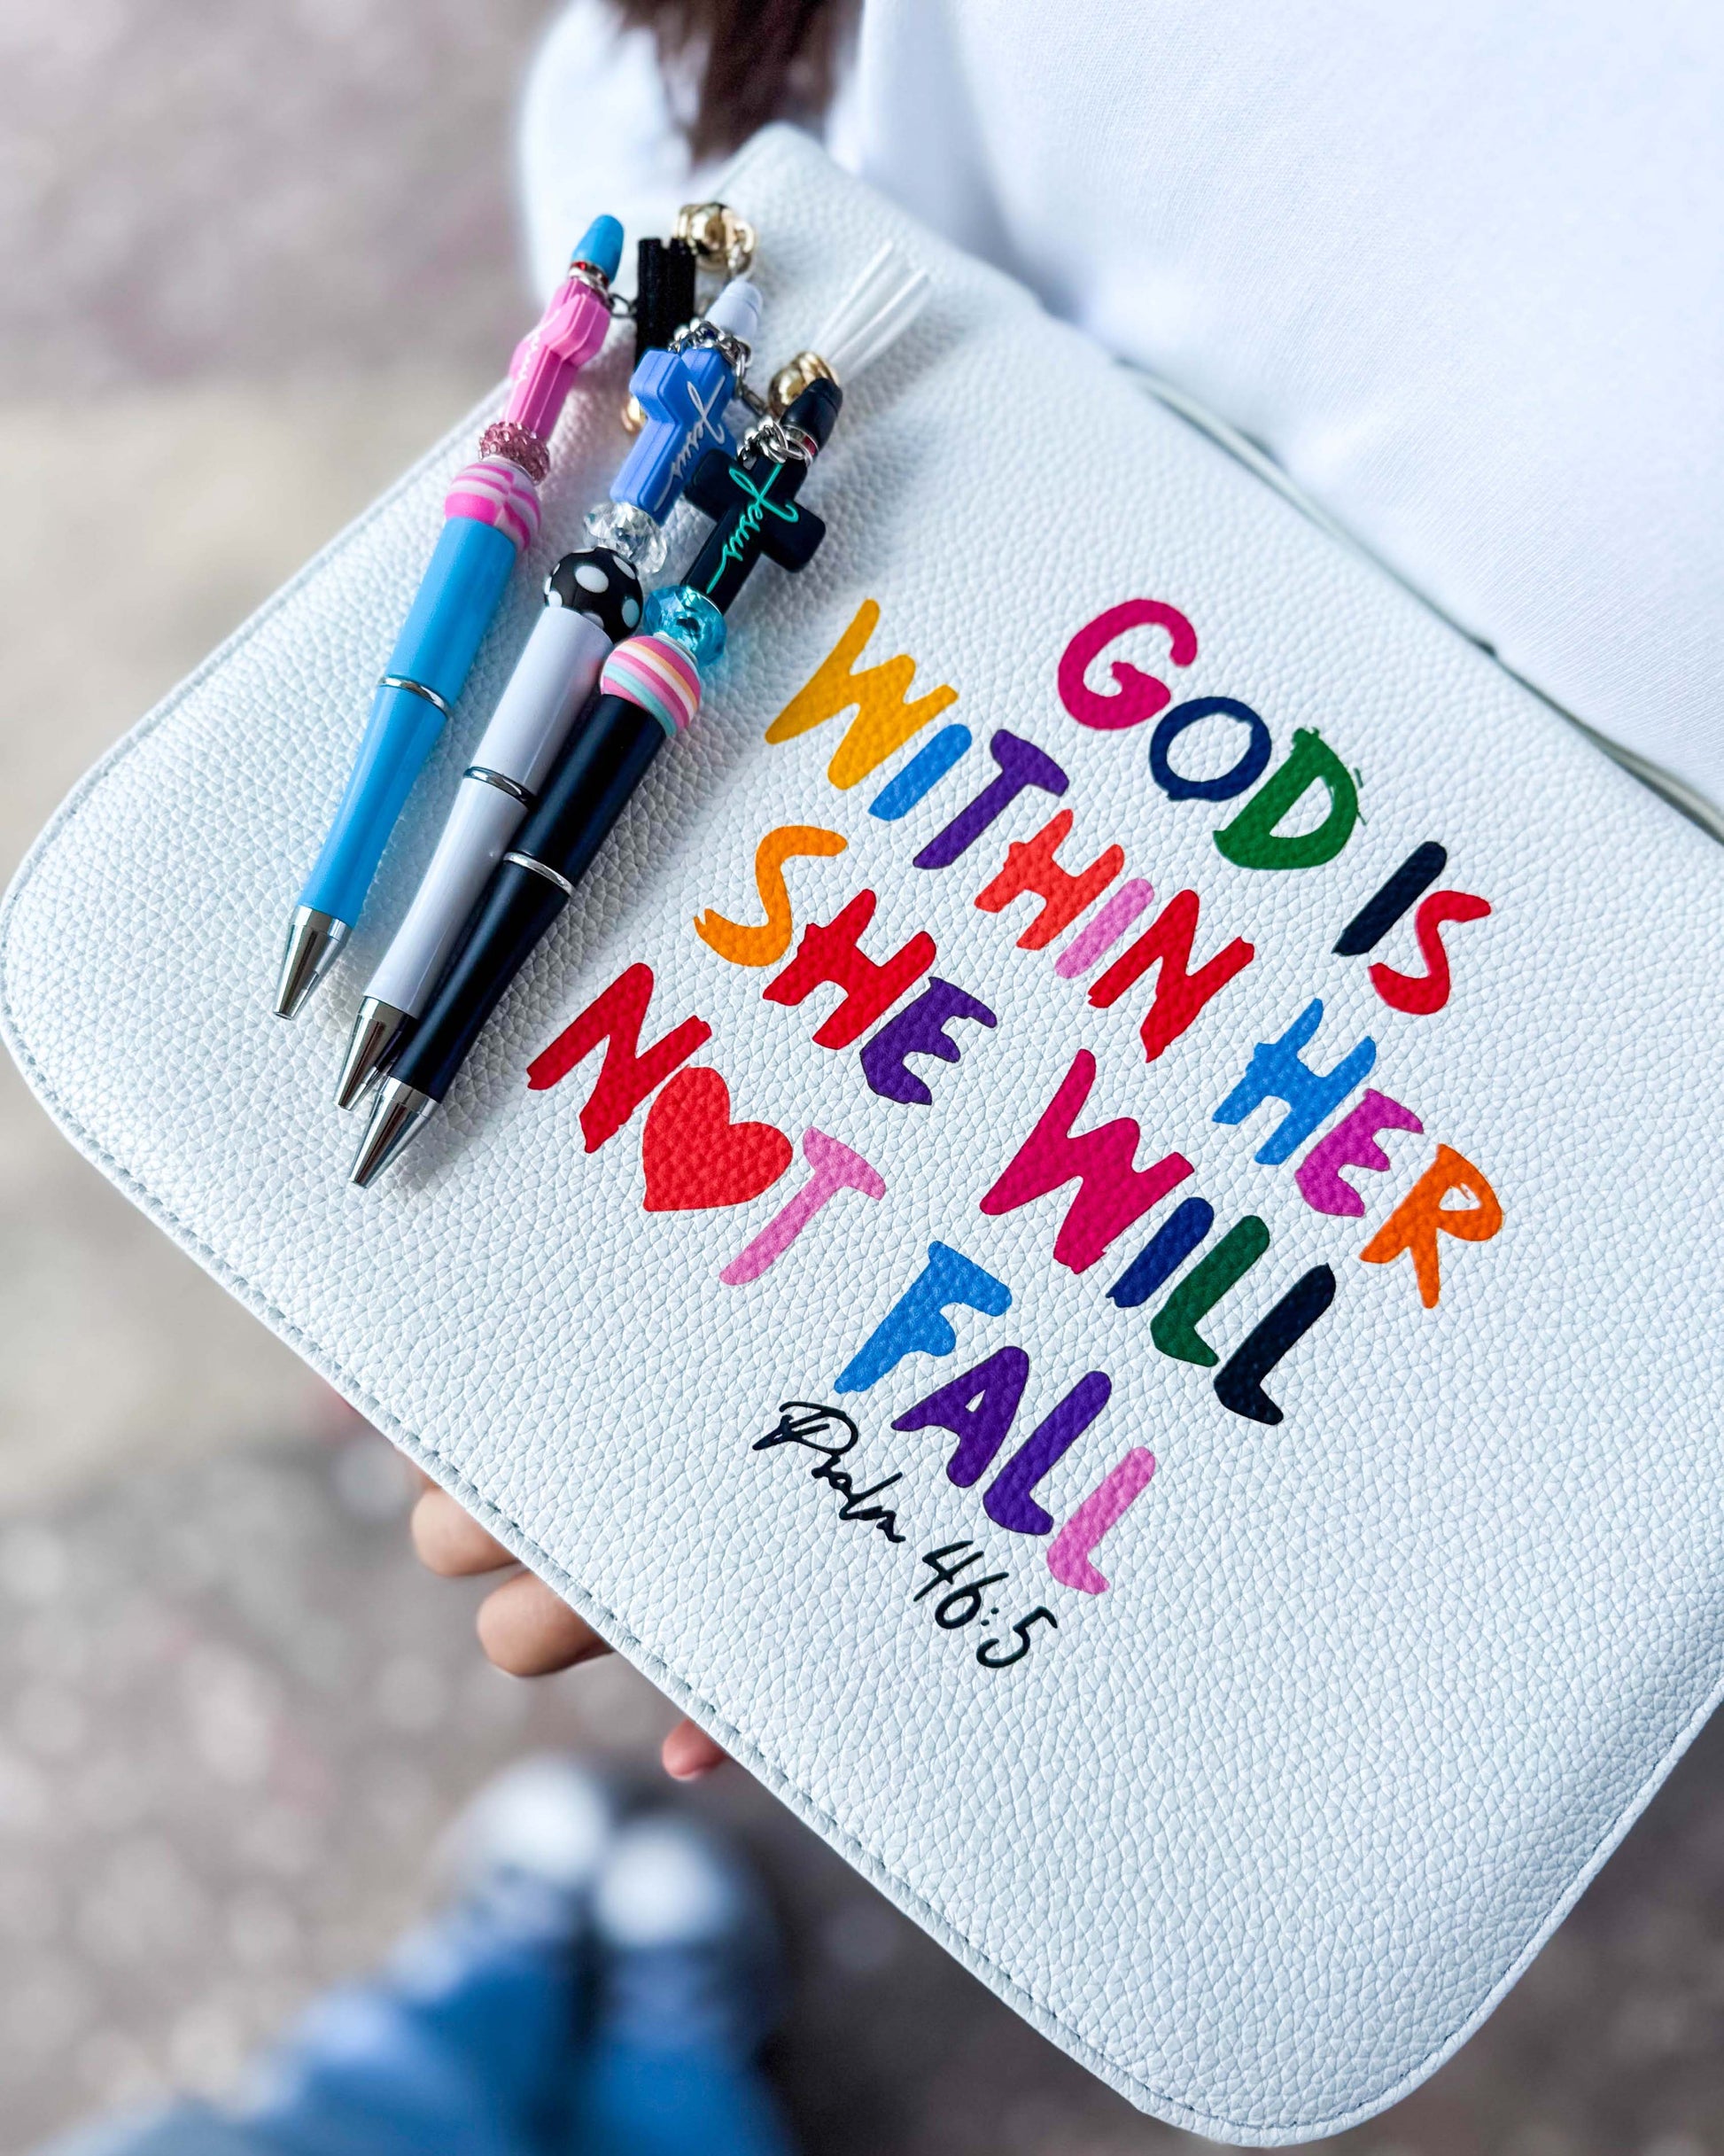 GOD IS
WITHIN HER
SHE WILL
N♥T FALL
Psalm 46:5
Jesus
Jesus
Jesus